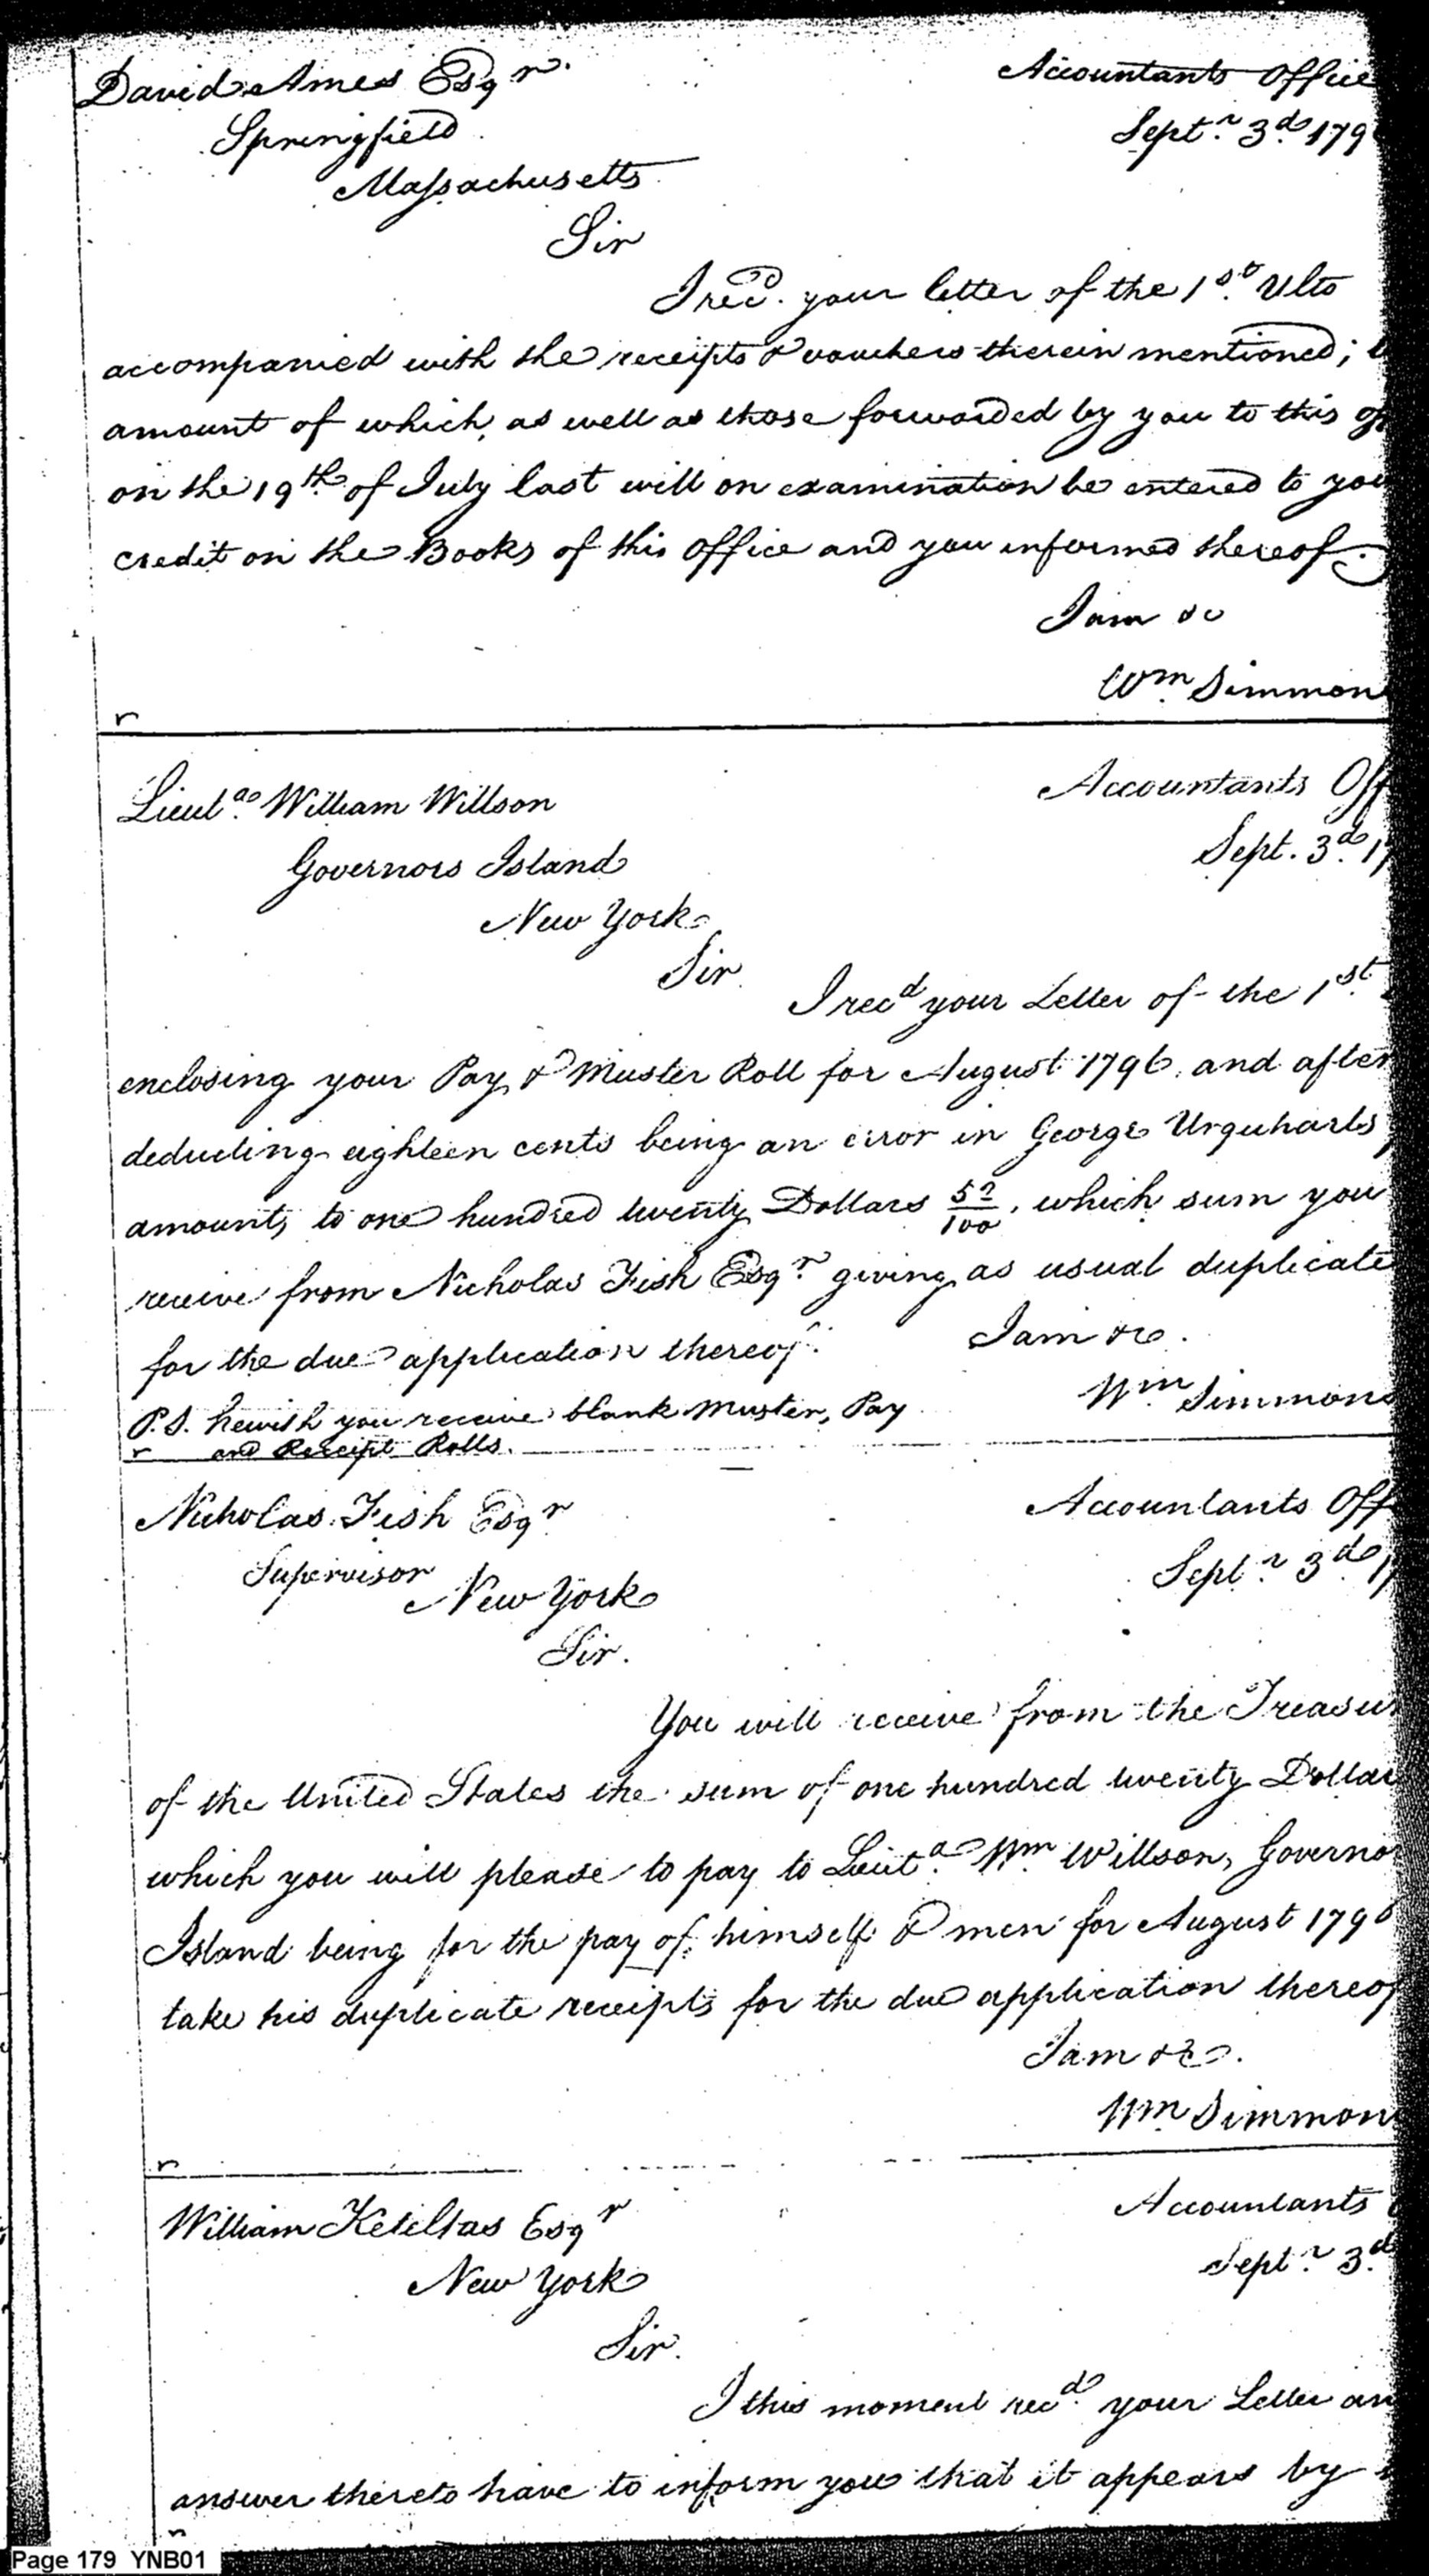 David Ames Esqr.
Accountants Office
Septr. 3d 179
Springfield
Massachusetts
Sir
I recd. your letter of the 1st. Ulto
accompanied with the receipts & vouchers therein mentioned;
amount of which, as well as those forwarded by you to this
on the 19th. of July last will on examination be entered to you
credit on the Books of this Office and you informed thereof.
I am &c
Wm. Simmon
r
Lieut. William Willson
Accountants Off
Governors Island
Sept. 3d. 17
New York
Sir
I recd your Letter of the 1st.
enclosing your Pay & Muster Roll for August 1796, and after
deducting eighteen cents being an error in George Urquharts
amounts to one hundred twenty Dollars /100, which sum you
receive from Nicholas Fish Esqr. giving as usual duplicate
for the due application thereof.
I am &c.
Wm. Simmons
P.S. hewith you receive blank Muster, Pay
r and Receipt Rolls.
Nicholas Fish Esqr
Accountants Off
Supervisor
Septr. 3d. 1
New York
Sir.
You will receive from the Treasu
of the United States the sum of one hundred twenty Dollar
which you will please to pay to Lieut. Wm. Willson, Governo
Island being for the pay of himself & men for August 1796
take his duplicate receipts for the due application thereof
I am &c.
Wm. Simmon
r
William Keteltas Esqr
Accountants
New York
Septr. 3d.
Sir.
I this moment recd. your Letter an
answer thereto have to inform you that it appears by
Page 179 YNB01